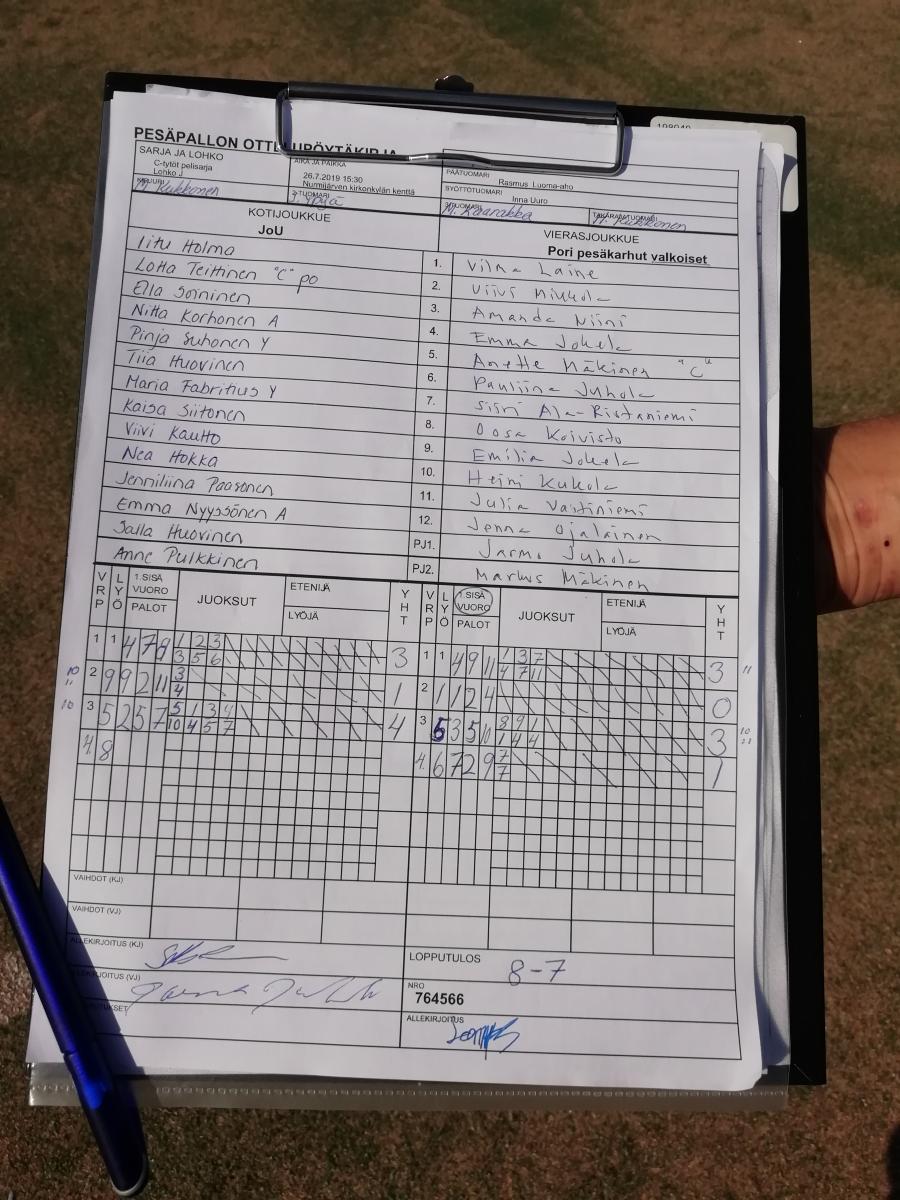 PESÄPALLON OTTELUPÖYTÄKIRJA
SARJA JA LOHKO
C-tytöt pelisarja
Lohko J
AIKA JA PAIKKA
26.7.2019 15:30
Nurmijärven kirkonkylän kenttä
PÄÄTUOMARI
Rasmus Luoma-aho
SYÖTTÖTUOMARI
Inna Uuro
KIRJURI Kukkonen
2-TUOMARI
M. Kaarakka
TAKARAJATUOMARI Kukkonen
KOTIJOUKKUE
JoU
VIERASJOUKKUE
Pori pesäkarhut valkoiset
Iitu Holma 1. Vilma Laine
Lotta Teittinen "C" po 2. Viivi Mikkola
Ella Soininen 3. Amanda Niini
Nitta Korhonen A 4. Emma Jokela
Pinja Suhonen Y 5. Anette Mäkinen "C"
Tiia Huovinen 6. Pauliina Juhola
Maria Fabritius Y 7. Siiri Ala-Ristaniemi
Kaisa Siitonen 8. Oosa Koivisto
Viivi Kautto 9. Emilia Jokela
Nea Hokka 10. Heini Kukola
Jenniliina Paasonen 11. Julia Vastiniemi
Emma Nyyssönen A 12. Jenna Ojalainen
Salla Huovinen PJ1. Jarmo Juhola
Anne Pulkkinen PJ2. Markus Mäkinen
VRP LYÖ 1.SISÄ VUORO PALOT JUOKSUT ETENIJÄ LYÖJÄ YHT VRP LYÖ 1.SISÄ VUORO PALOT JUOKSUT ETENIJÄ LYÖJÄ YHT
1 1 4 7 9 1 2 3 3 1 1 4 9 11 1 3 7 3 11
3 5 6 4 7 11
10 11 2 9 9 2 11 3 1 2 1 1 2 4 0
4
10 3 5 2 5 7 5 1 3 4 4 3 5 3 5 10 8 9 1 3 10 11
10 4 5 7 1 4 4
4. 8 4. 6 7 2 9 7 1
7
VAIHDOT (KJ)
VAIHDOT (VJ)
ALLEKIRJOITUS (KJ)
LOPPUTULOS 8-7
ALLEKIRJOITUS (VJ)
NRO
764566
ALLEKIRJOITUS